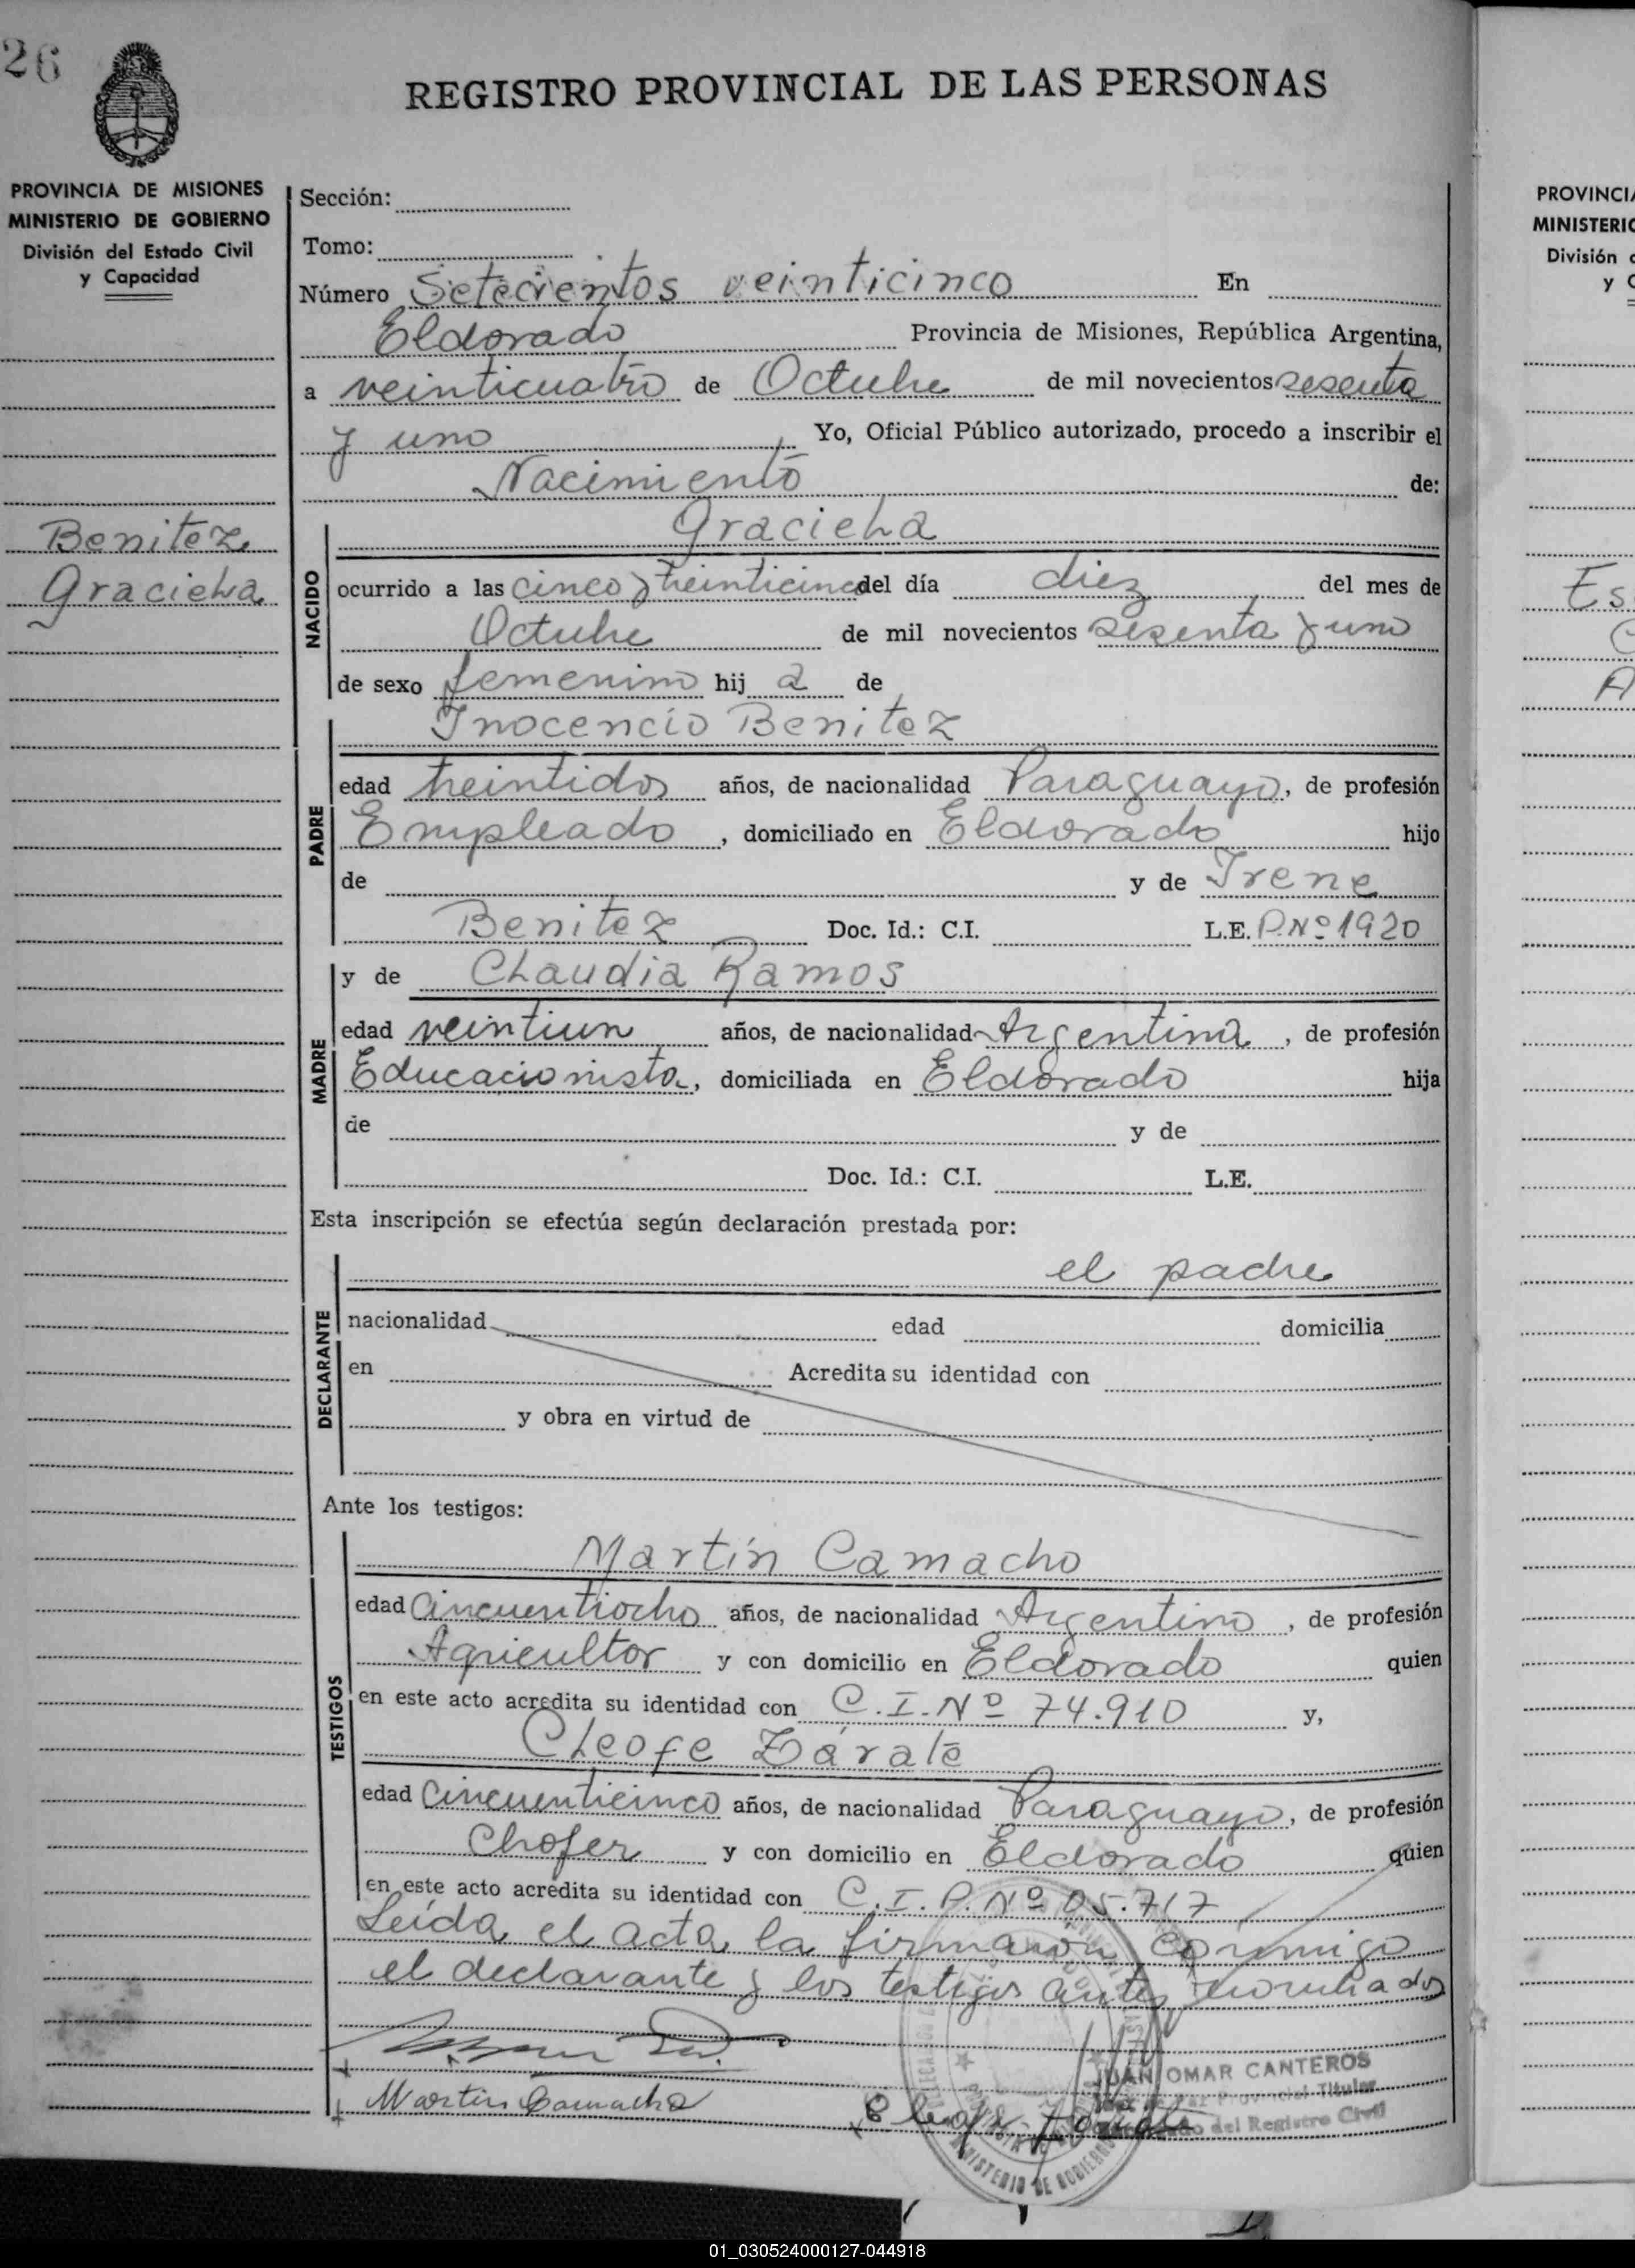 26
REGISTRO PROVINCIAL DE LAS PERSONAS
PROVINCIA DE MISIONES
MINISTERIO DE GOBIERNO
División del Estado Civil
y Capacidad
Benitez
Graciela
Sección:
Tomo:
Número Setecientos veinticinco En
Eldorado Provincia de Misiones, República Argentina,
a veinticuatro de Octubre de mil novecientos sesenta
y uno Yo, Oficial Público autorizado, procedo a inscribir el
Nacimiento de:
NACIDO
Graciela
ocurrido a las cinco y treinticinco del día diez del mes de
Octubre de mil novecientos sesenta y uno
de sexo femenino hij a de
PADRE
Inocencio Benitez
edad treintidos años, de nacionalidad Paraguayo, de profesión
Empleado, domiciliado en Eldorado hijo
de y de Irene
Benitez Doc. Id.: C.I. L.E. P.Nº 1920
MADRE
y de Claudia Ramos
edad veintiun años, de nacionalidad Argentina, de profesión
Educacionista, domiciliada en Eldorado hija
de y de
Doc. Id.: C.I. L.E.
Esta inscripción se efectúa según declaración prestada por:
DECLARANTE
el padre
nacionalidad edad domicilia
en Acredita su identidad con
y obra en virtud de
Ante los testigos:
TESTIGOS
Martín Camacho
edad Cincuentiocho años, de nacionalidad Argentino, de profesión
Agricultor y con domicilio en Eldorado quien
en este acto acredita su identidad con C.I. Nº 74.910 y,
Cleofe Zárate
edad Cincuenticinco años, de nacionalidad Paraguayo, de profesión
Chofer y con domicilio en Eldorado quien
en este acto acredita su identidad con C.I.P. Nº 05.717
Leída el acta la firmaron conmigo
el declarante y los testigos antes nombrados
JUAN OMAR CANTEROS
Juez de Paz Provincial Titular
Encargado del Registro Civil
Martin Camacho
MINISTERIO DE GOBIERNO
PROVINCIA
MINISTERIO
División
y
Es
01_030524000127-044918